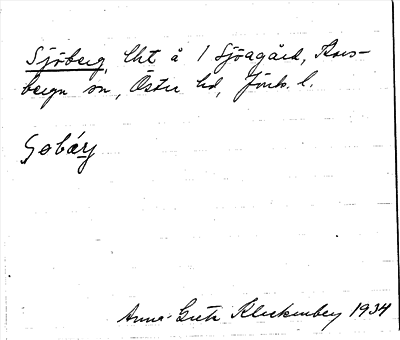 Sjöberg, lht å 1 Sjöagård, Kars-
bergn sn, Östra hd, Jönk. l.
Anna-Greta Kluckenbey 1934